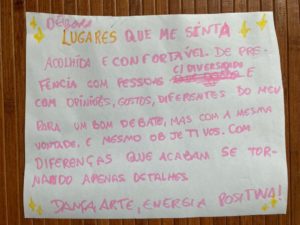 DÉBORA
LUGARES QUE ME SINTA
ACOLHIDA E CONFORTÁVEL. DE PRE-
FÊNCIA COM PESSOAS C/ DIVERSIDADE
E
COM OPINIÕES, GOSTOS, DIFERENTES DO MEU
PARA UM BOM DEBATE, MAS COM A MESMA
VONTADE, E MESMO OBJETIVOS. COM
DIFERENÇAS QUE ACABAM SE TOR-
NANDO APENAS DETALHES.
DANÇA, ARTE, ENERGIA POSITIVA!